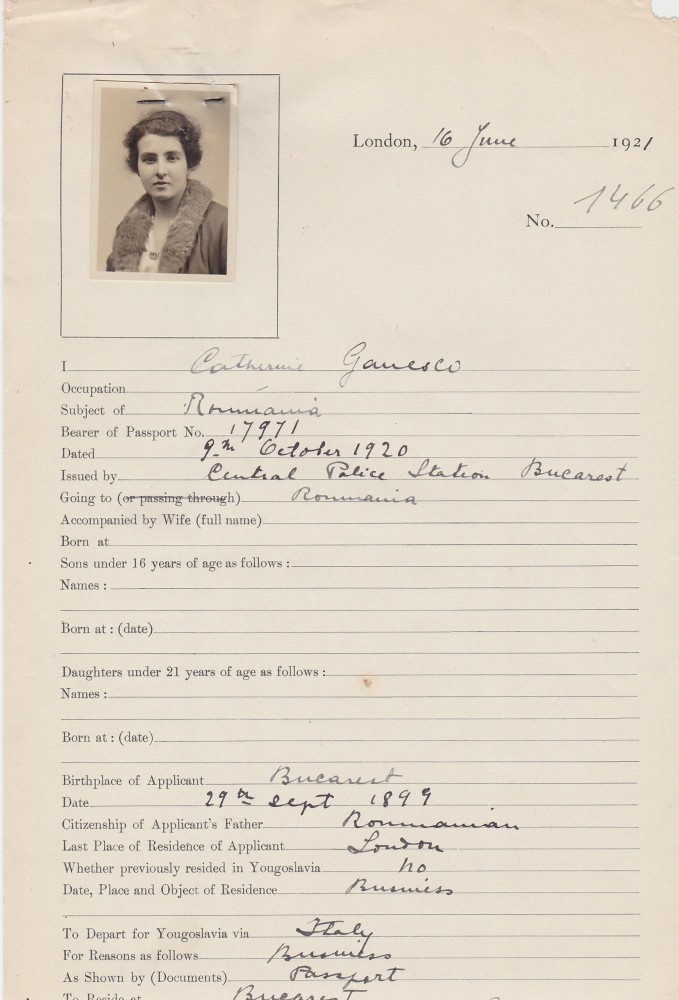 London, 16 June 1921
No. 1466
I Catherine Ganesco
Occupation
Subject of Roumania
Bearer of Passport No. 17971
Dated 9th October 1920
Issued by Central Police Station Bucarest
Going to (or passing through) Roumania
Accompanied by Wife (full name)
Born at
Sons under 16 years of age as follows :
Names :
Born at : (date)
Daughters under 21 years of age as follows :
Names :
Born at : (date)
Birthplace of Applicant Bucarest
Date 29th Sept 1899
Citizenship of Applicant's Father Roumanian
Last Place of Residence of Applicant London
Whether previously resided in Yougoslavia no
Date, Place and Object of Residence Business
To Depart for Yougoslavia via Italy
For Reasons as follows Business
As Shown by (Documents) Passport
To Reside at Bucarest